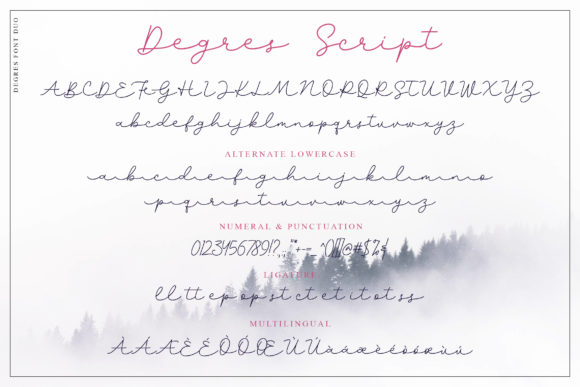 DEGRES FONT DUO
Degres Script
ABCDEFGHIJKLMNOPQRSTUVWXYZ
abcdefghijklmnopqrstuvwxyz
ALTERNATE LOWERCASE
a b c d e f g h i j k l m n o
p q r s t u v w x y z
NUMERAL & PUNCTUATION
0123456789!?
LIGATURE
ll tt ep op st ct et it ot ss
MULTILINGUAL